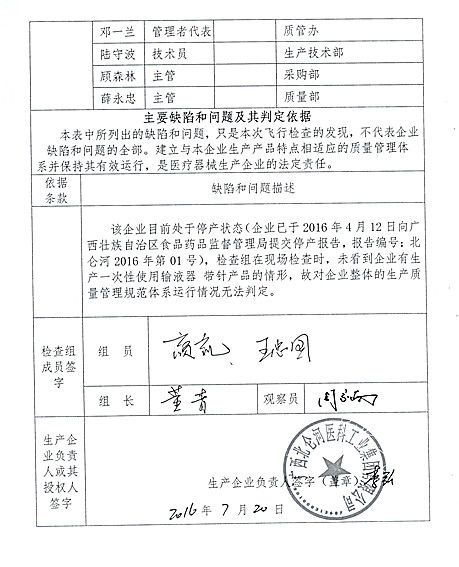 邓一兰 管理者代表 质管办
陆守波 技术员 生产技术部
顾森林 主管 采购部
薛永忠 主管 质量部
主要缺陷和问题及其判定依据
本表中所列出的缺陷和问题，只是本次飞行检查的发现，不代表企业
缺陷和问题的全部。建立与本企业生产产品特点相适应的质量管理体
系并保持其有效运行，是医疗器械生产企业的法定责任。
依据
条款
缺陷和问题描述
该企业目前处于停产状态(企业已于 2016 年 4 月 12 日向广
西壮族自治区食品药品监督管理局提交停产报告，报告编号：北
仑河 2016 年第 01 号)，检查组在现场检查时，未看到企业有生
产一次性使用输液器 带针产品的情形，故对企业整体的生产质
量管理规范体系运行情况无法判定。
检查组
成员签
字
组 员
王忠国
组 长 董青 观察员
生产企
业负责
人或其
授权人
签字
广西北仑河医科工业集团有限公司
生产企业负责人签字（盖章）
2016 年 7 月 20 日